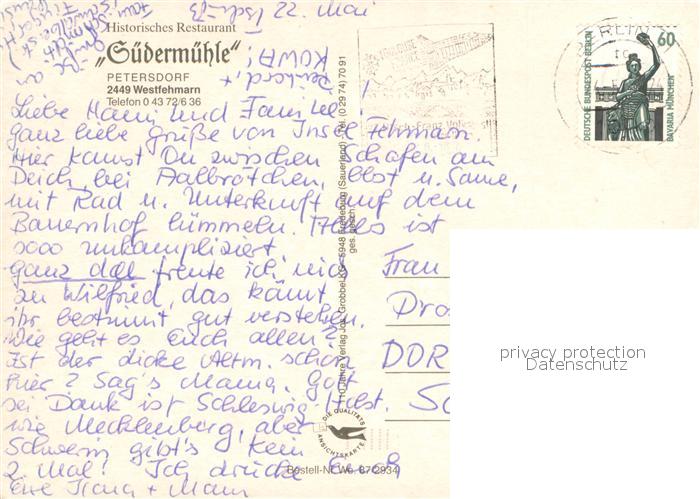 22. Mai
Historisches Restaurant
„Südermühle"
PETERSDORF
2449 Westfehmarn
Telefon 0 43 72/6 36
Liebe und Familie!
Ganz liebe Grüße von Insel Fehmarn.
Hier kannst Du zwischen Schafen am
Deich, bei Aalbrötchen, Obst u. Sonne,
mit Rad u. Unterkunft auf dem
Bauernhof lümmeln. Alles ist
sooo unkompliziert.
Ganz doll freute ich mich
zu Wilfried, das könnt
ihr bestimmt gut verstehen.
Wie geht es Euch allen?
Ist der dicke Altm. schon
hier? Sag's Mama. Gott
sei Dank ist Schleswig Holst.
wie Mecklenburg, aber
Schwerin gibt's kein
2. Mal! Ich drücke Euch
Eure
Frau
DDR
BERLIN
60
DEUTSCHE BUNDESPOST BERLIN
BAVARIA MÜNCHEN
10 Jahre Verlag Jos. Grobbel KG · 5948 Fredeburg (Sauerland) · Tel. (0 29 74) 70 91
ges. gesch.
DIE QUALITÄTS
ANSICHTSKARTE
Bestell-Nr. We. 87(2934)
privacy protection
Datenschutz